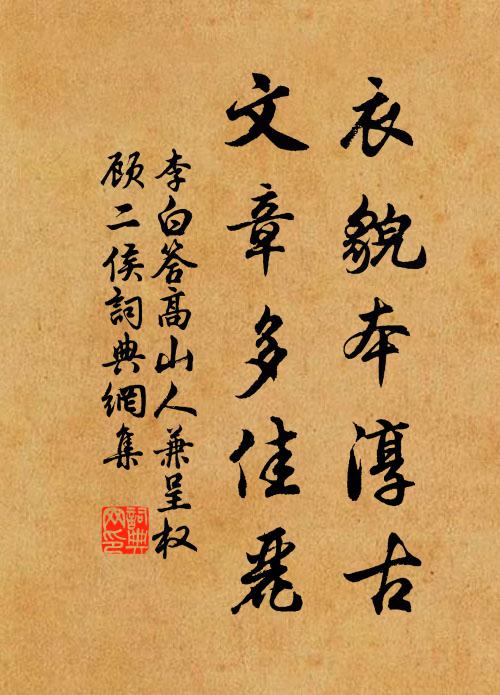 衣貌本淳古
文章多佳麗
李白答高山人兼呈权
顾二侯詞典網集
詞典网印